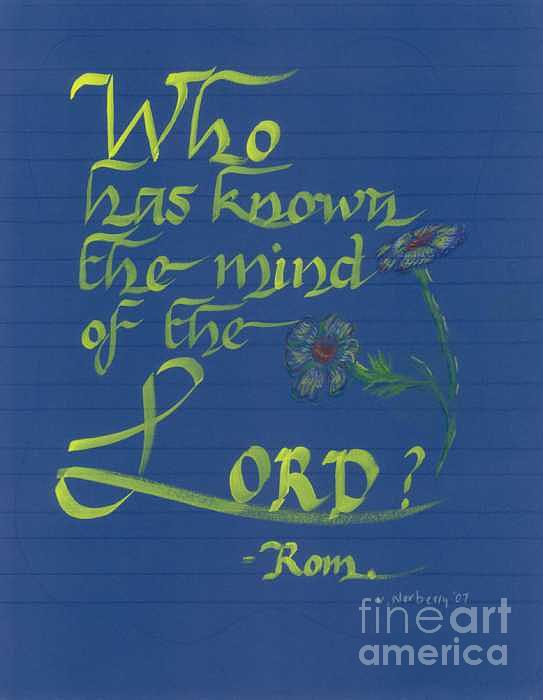 Who
has known
the mind
of the
LORD?
-Rom.
Norberry '07
fineart
america